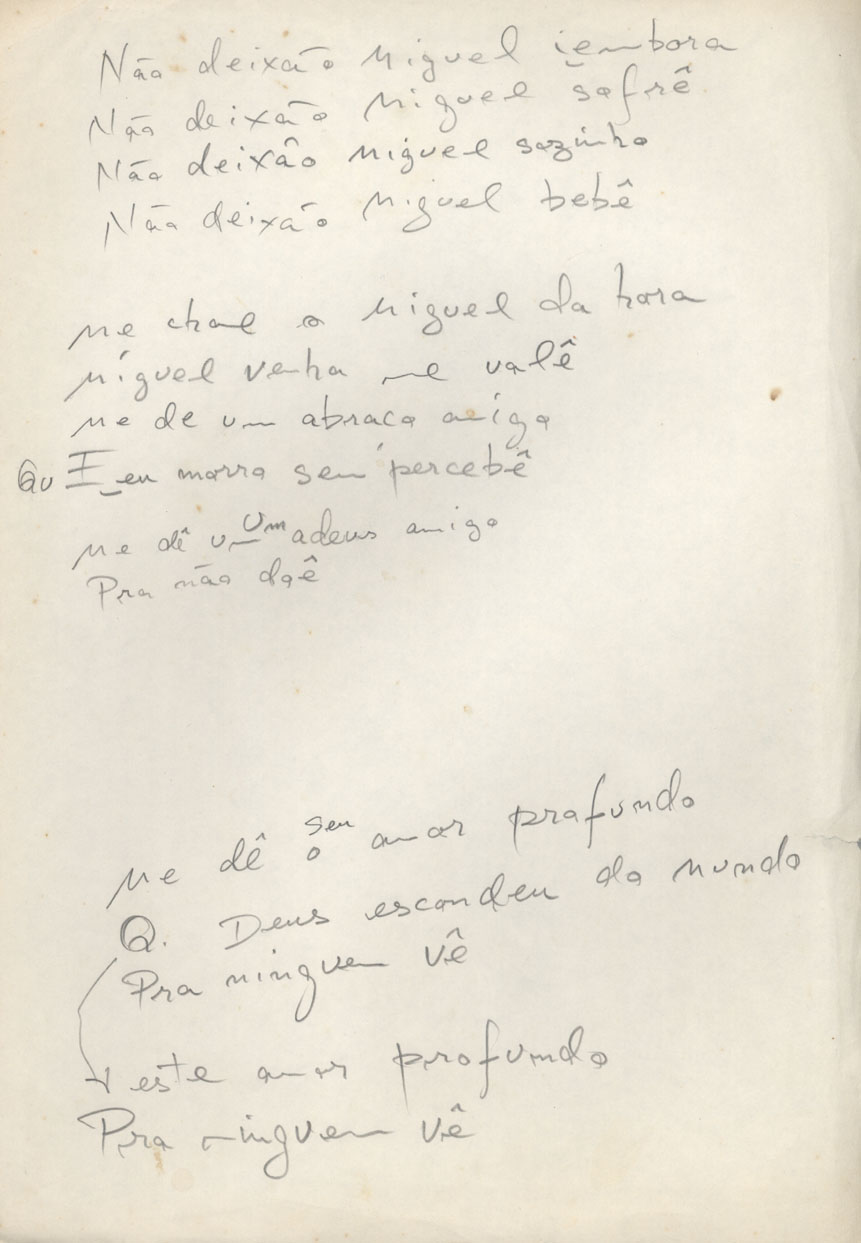 Não deixão Miguel iembora
Não deixão Miguel sofrê
Não deixão Miguel sozinho
Não deixão Miguel bebê
Me chal o Miguel da hora
Miguel venha me valê
Me de um abraco amigo
Qu I eu morro sem percebê
Me dê um um adeus amigo
Pra não doê
Me dê o seu amor profundo
Q. Deus escondeu do mundo
Pra ninguem vê
este amor profundo
Pra ninguem vê